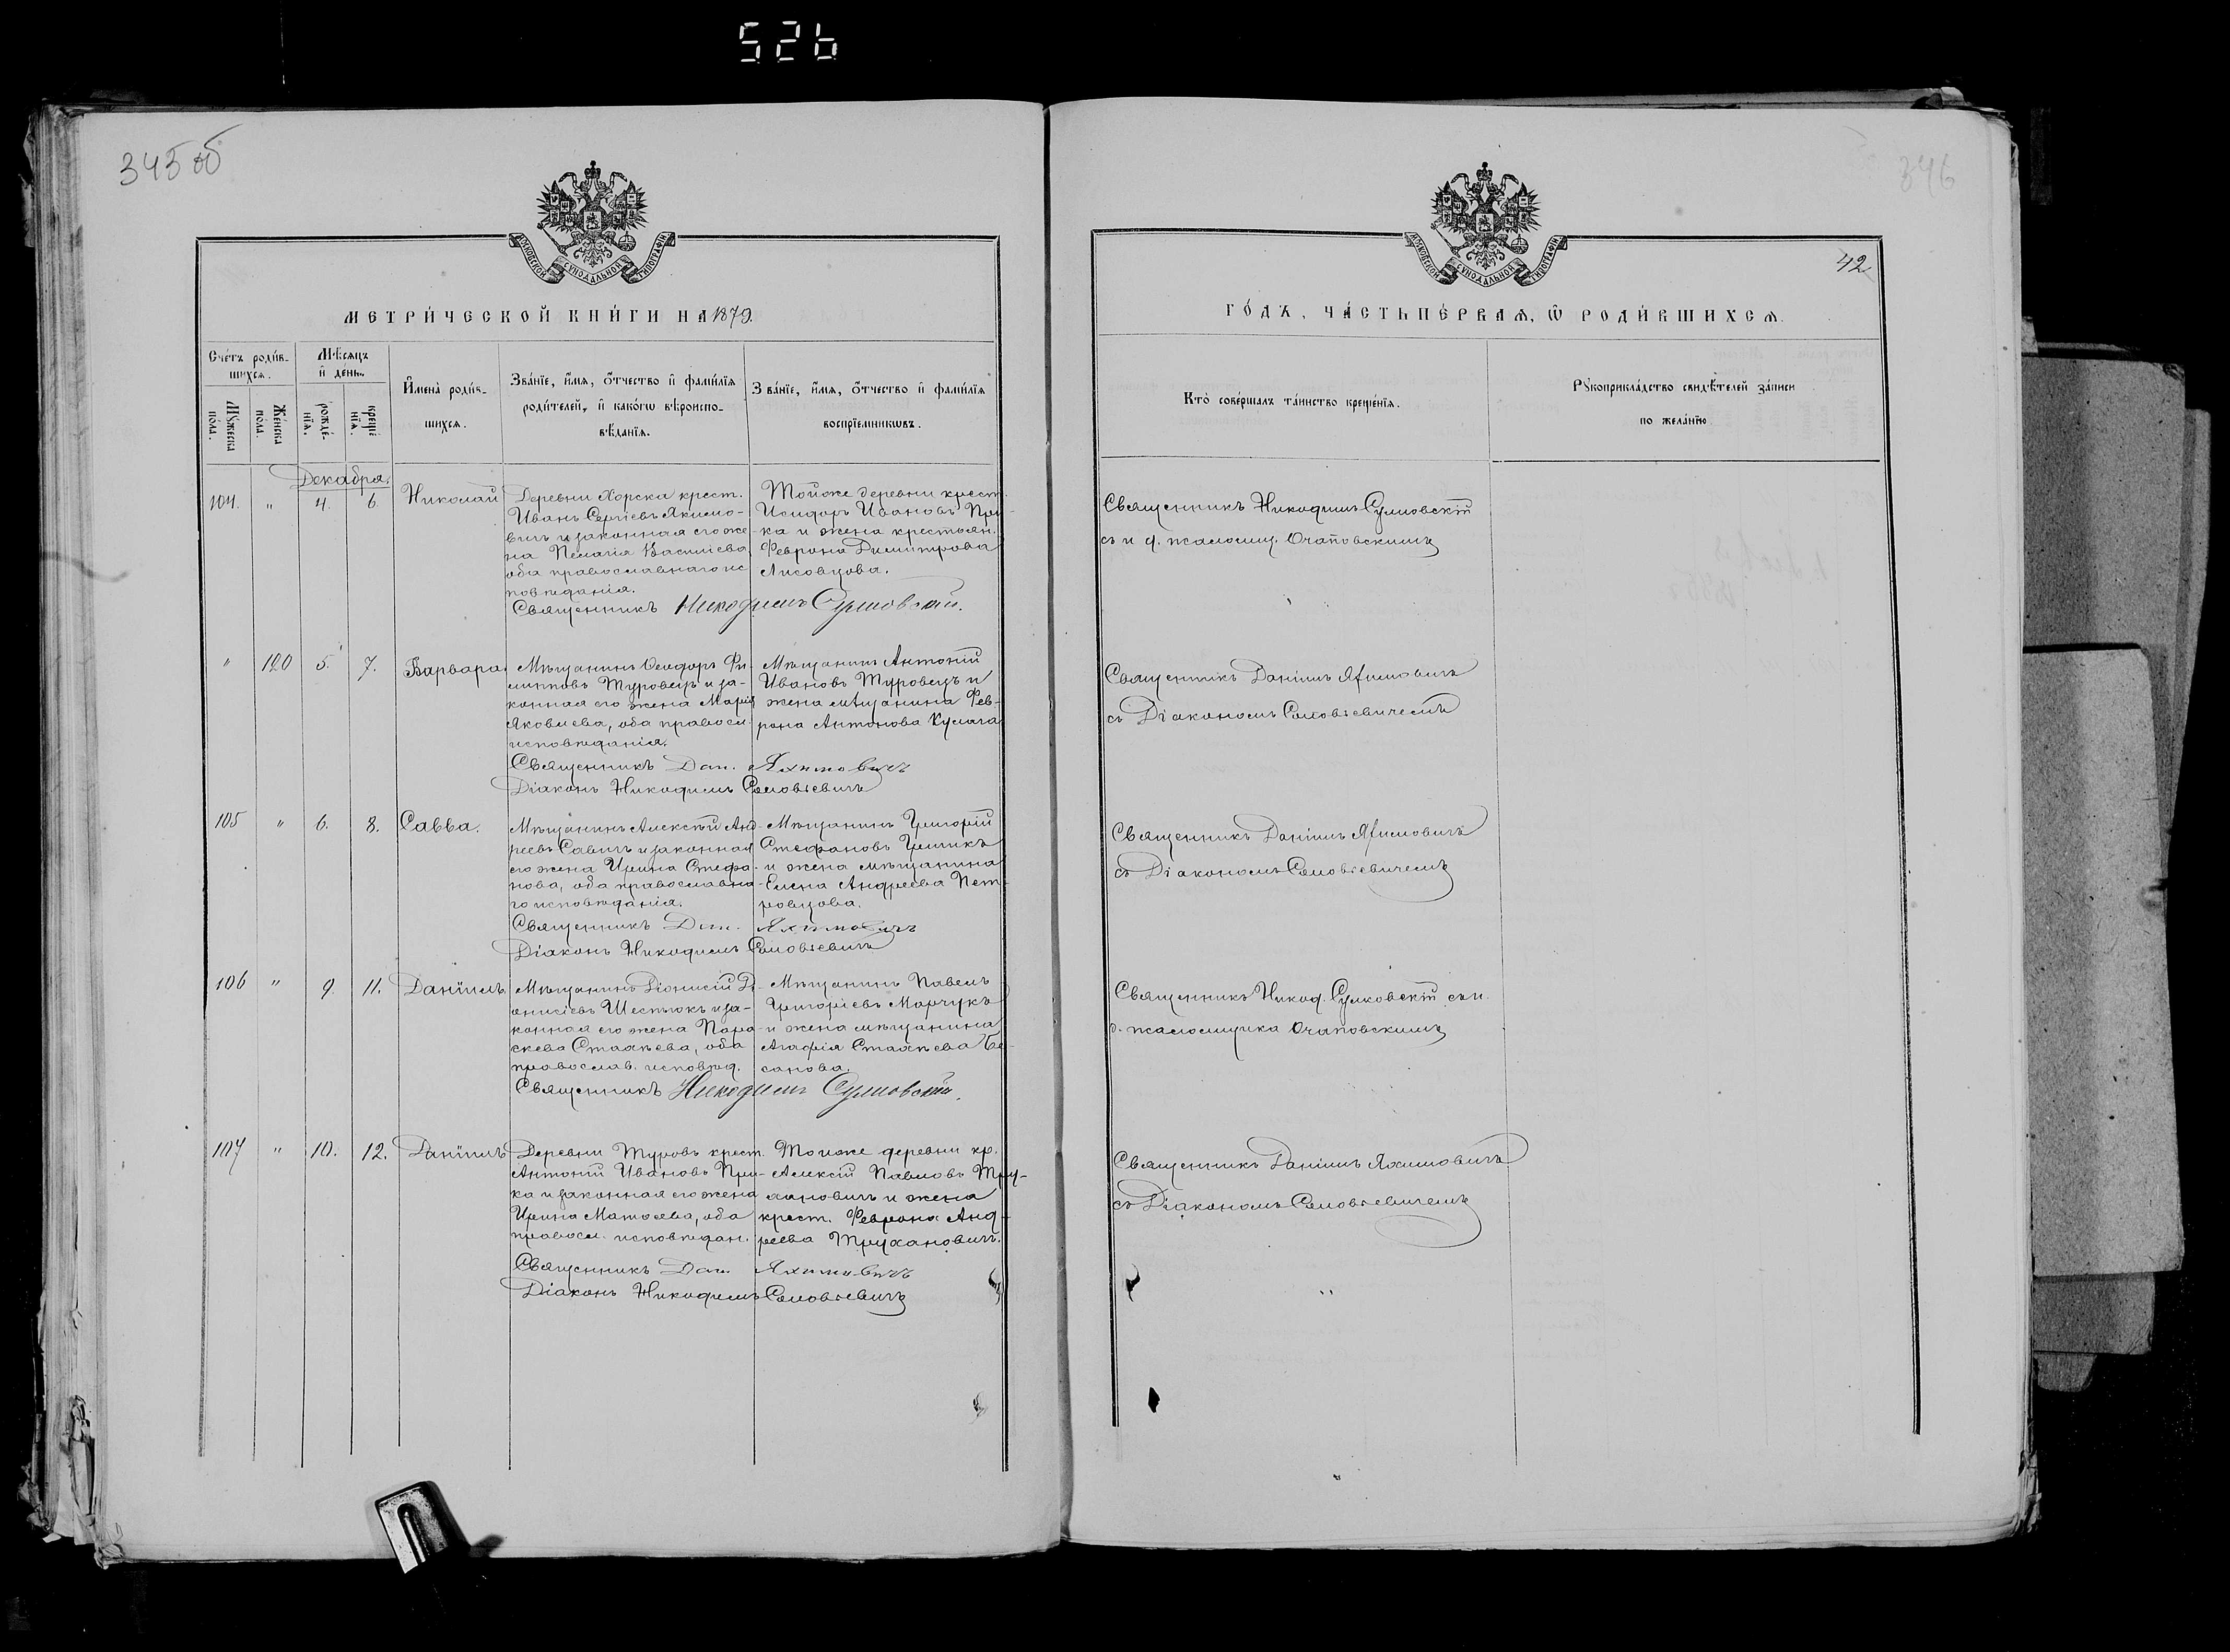 526
345 об
346
МОСКОВСКОЙ СѴНОДАЛЬНОЙ ТИПОГРАФІИ
МОСКОВСКОЙ СѴНОДАЛЬНОЙ ТИПОГРАФІИ
42
МЕТРИ́ЧЕСКОЙ КНИ́ГИ НА 1879.
ГО́ДЪ, ЧА́СТЬ ПЕ́РВАѦ, Ѡ҆ РОДИ́ВШИХСѦ.
Сче́тъ роди́вшихсѧ.
Мѣ́сѧцъ и҆ день.
Мꙋ́жеска по́ла.
Же́нска по́ла.
рожде́нїѧ.
креще́нїѧ.
И҆мена̀ роди́вшихсѧ.
Зва́нїе, и҆́мѧ, ѻ҆́тчество и҆ фами́лїѧ
роди́телей, и҆ како́гѡ вѣроиспо-
вѣ́данїѧ.
Зва́нїе, и҆́мѧ, ѻ҆́тчество и҆ фами́лїѧ
воспрїе́мникѡвъ.
Кто̀ соверша́лъ та́инство креще́нїѧ.
Рꙋкоприкла́дство свидѣ́телей за́писи
по жела́нїю
Декабря.
104. " 4. 6. Николай
Деревни Хорска крест.
Иванъ Сергіевъ Якимо-
вичъ и законная его же
на Пелагія Василіева
оба православнаго ис
повѣданія.
Священникъ Никодимъ Сулковскій.
Тойже деревни крест.
Исидоръ Ивановъ При-
ка и жена крестьян.
Феврона Димитрова
Лисовцова.
Священникъ Никодимъ Сулковскій
съ и. д. псаломщ. Очаповскимъ
" 120 5. 7. Варвара.
Мѣщанинъ Ѳеодоръ Фи-
липповъ Туровецъ и за-
конная его жена Марія
Яковлева, оба правосл.
исповѣданія.
Священникъ Дан. Яхимовичъ
Діаконъ Никодимъ Соловьевичъ
Мѣщанинъ Антоній
Ивановъ Туровецъ и
жена мѣщанина Фев-
рона Антонова Кулага
Священникъ Даніилъ Яхимовичъ
съ Діакономъ Соловьевичемъ
105 " 6. 8. Савва.
Мѣщанинъ Алексѣй Анд
реевъ Савичъ и законная
его жена Ирина Стефа-
нова, оба православна-
го исповѣданія.
Священникъ Дан. Яхимовичъ
Діаконъ Никодимъ Соловьевичъ
Мѣщанинъ Григорій
Стефановъ
и жена мѣщанина
Елена Андреева Пет-
ровцова.
Священникъ Даніилъ Яхимовичъ
съ Діакономъ Соловьевичемъ
106 " 9. 11. Даніилъ
Мѣщанинъ Діонисій Ді-
онисіевъ Шестюкъ и за-
конная его жена Пара-
скева Стахѣева, оба
православ. исповѣд.
Священникъ Никодимъ Сулковскій.
Мѣщанинъ Павелъ
Григоріевъ Марчукъ
и жена мѣщанина
Агафія Стахѣева Бе-
санова.
Священникъ Никод. Сулковскій съ и.
д. псаломщика Очаповскимъ
107 " 10. 12. Даніилъ
Деревни Туровъ крест.
Антоній Ивановъ При-
ка и законная его жена
Ирина Матѳеева, оба
правосл. исповѣдан.
Священникъ Дан. Яхимовичъ
Діаконъ Никодимъ Соловьевичъ
Тойже деревни кр.
Алексій Павловъ Тру-
хановичъ и жена
крест. Феврона Анд-
реева Трухановичъ.
Священникъ Даніилъ Яхимовичъ
съ Діакономъ Соловьевичемъ